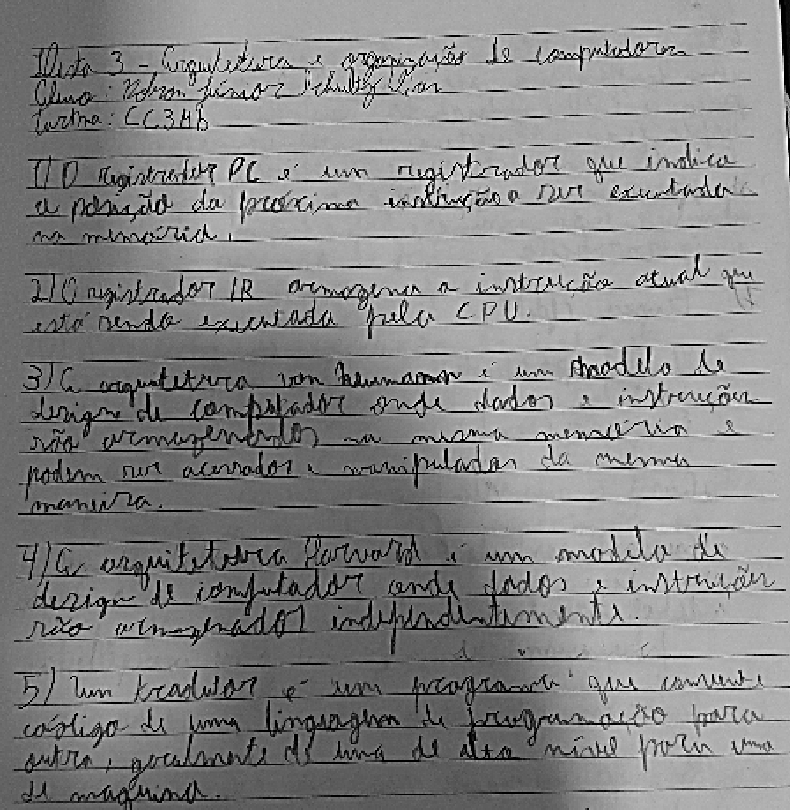 Lista 3 - Arquitetura e organização de computadores
Aluno: Júnior
Turma: CC3AB
1) O registrador PC é um registrador que indica
a posição da próxima instrução a ser executada
na memória.
2) O registrador IR armazena a instrução atual que
está sendo executada pela CPU.
3) A arquitetura von Neumann é um modelo de
design de computador onde dados e instruções
são armazenados na mesma memória e
podem ser acessados e manipulados da mesma
maneira.
4) A arquitetura Harvard é um modelo de
design de computador onde dados e instruções
são armazenados independentemente.
5) Um tradutor é um programa que converte
código de uma linguagem de programação para
outro, geralmente de uma de alto nível para uma
de maquina.